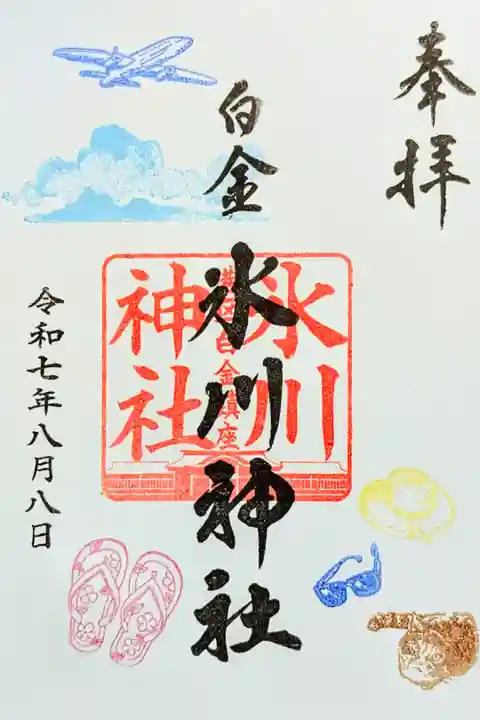 奉拝
白金
氷川神社
氷川
港区白金鎮座
神社
令和七年八月八日